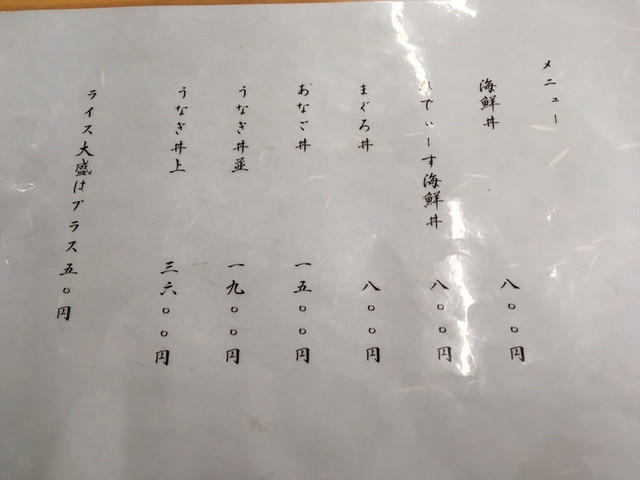 メニュー
海鮮丼 八〇〇円
れでぃーす海鮮丼 八〇〇円
まぐろ丼 八〇〇円
あなご丼 一五〇〇円
うなぎ丼並 一九〇〇円
うなぎ丼上 三六〇〇円
ライス大盛はプラス五〇円